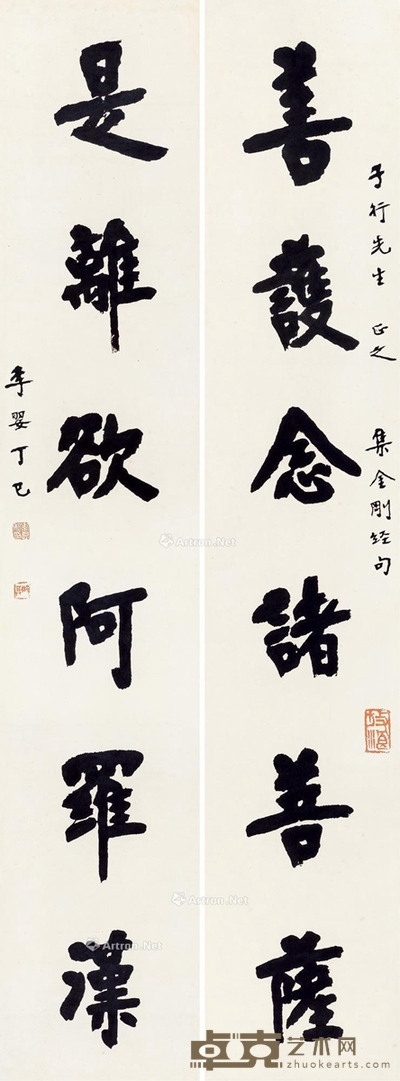 子行先生 正之 集金剛经句
善護念諸菩薩
是離欲阿羅漢
丁巳
Artron.Net
Artron.Net
Artron.Net
Artron.Net
卓克艺术网
zhuokearts.com